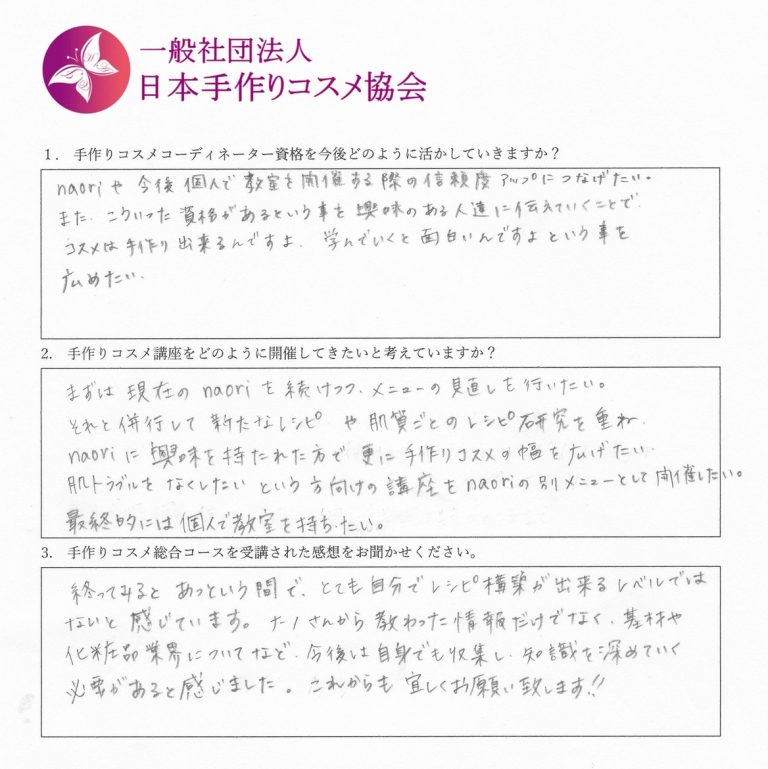 一般社団法人
日本手作りコスメ協会
1. 手作りコスメコーディネーター資格を今後どのように活かしていきますか？
naoriや今後個人で教室を開催する際の信頼度アップにつなげたい。
また、こういった資格があるという事を興味のある人達に伝えていくことで、
コスメは手作り出来るんですよ、学んでいくと面白いんですよという事を
広めたい。
2. 手作りコスメ講座をどのように開催してきたいと考えていますか？
まずは現在のnaoriを続けつつ、メニューの見直しを行いたい。
それと併行して新たなレシピや肌質ごとのレシピ研究を重ね、
naoriに興味を持たれた方で更に手作りコスメの幅を広げたい、
肌トラブルをなくしたいという方向けの講座をnaoriの別メニューとして開催したい。
最終的には個人で教室を持ちたい。
3. 手作りコスメ総合コースを受講された感想をお聞かせください。
終ってみるとあっという間で、とても自分でレシピ構築が出来るレベルでは
ないと感じています。さんから教わった情報だけでなく、基材や
化粧品業界についてなど、今後は自身でも収集し、知識を深めていく
必要があると感じました。これからも宜しくお願い致します!!